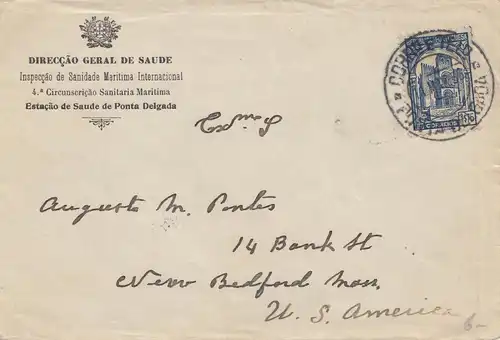 DIRECÇÃO GERAL DE SAUDE
Inspecção de Sanidade Maritima Internacional
4.ª Circunscrição Sanitaria Maritima
Estação de Saude de Ponta Delgada
Exmo S
Augusto M. Pontes
14 Bank St
New Bedford Mass.
U. S. America
6-